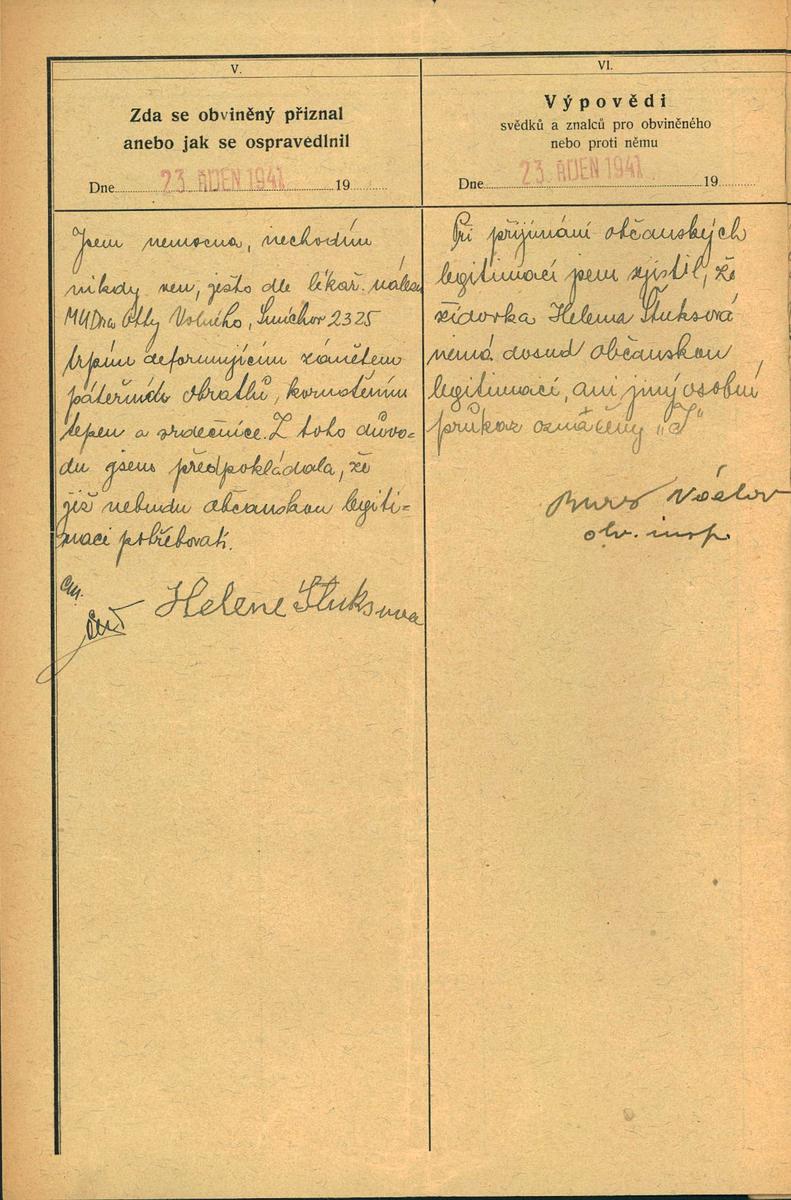 V.
Zda se obviněný přiznal
anebo jak se ospravedlnil
Dne 23. ŘÍJEN 1941 19
Jsem nemocna, nechodím
nikdy ven, ješto dle lékař. nálezu
MUDra Otty Volného, Smíchov 2325
trpím deformujícím zánětem
páteřních obratlů, kornatěním
tepen a srdečnice. Z toho důvo-
du jsem předpokládala, že
již nebudu občanskou legiti-
maci potřebovati.
Helene Štuksova
VI.
Výpovědi
svědků a znalců pro obviněného
nebo proti němu
Dne 23. ŘÍJEN 1941 19
Při přijímání občanských
legitimací jsem zjistil, že
židovka Helena Štuksová
nemá dosud občanskou
legitimací, ani jiný osobní
průkaz označený „J"
obv. insp.